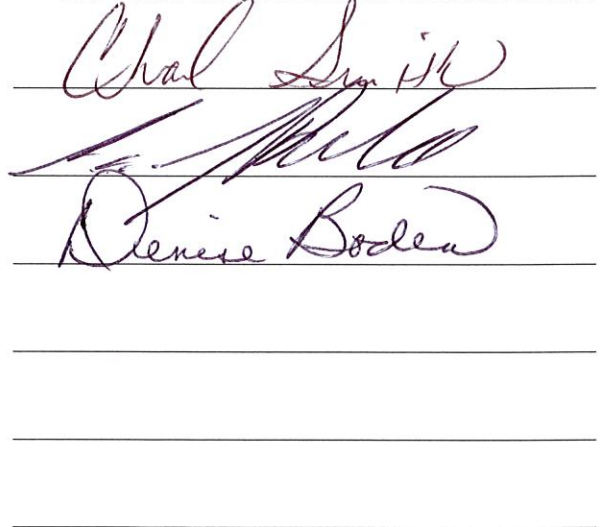 Chad Smith
Denise Boden